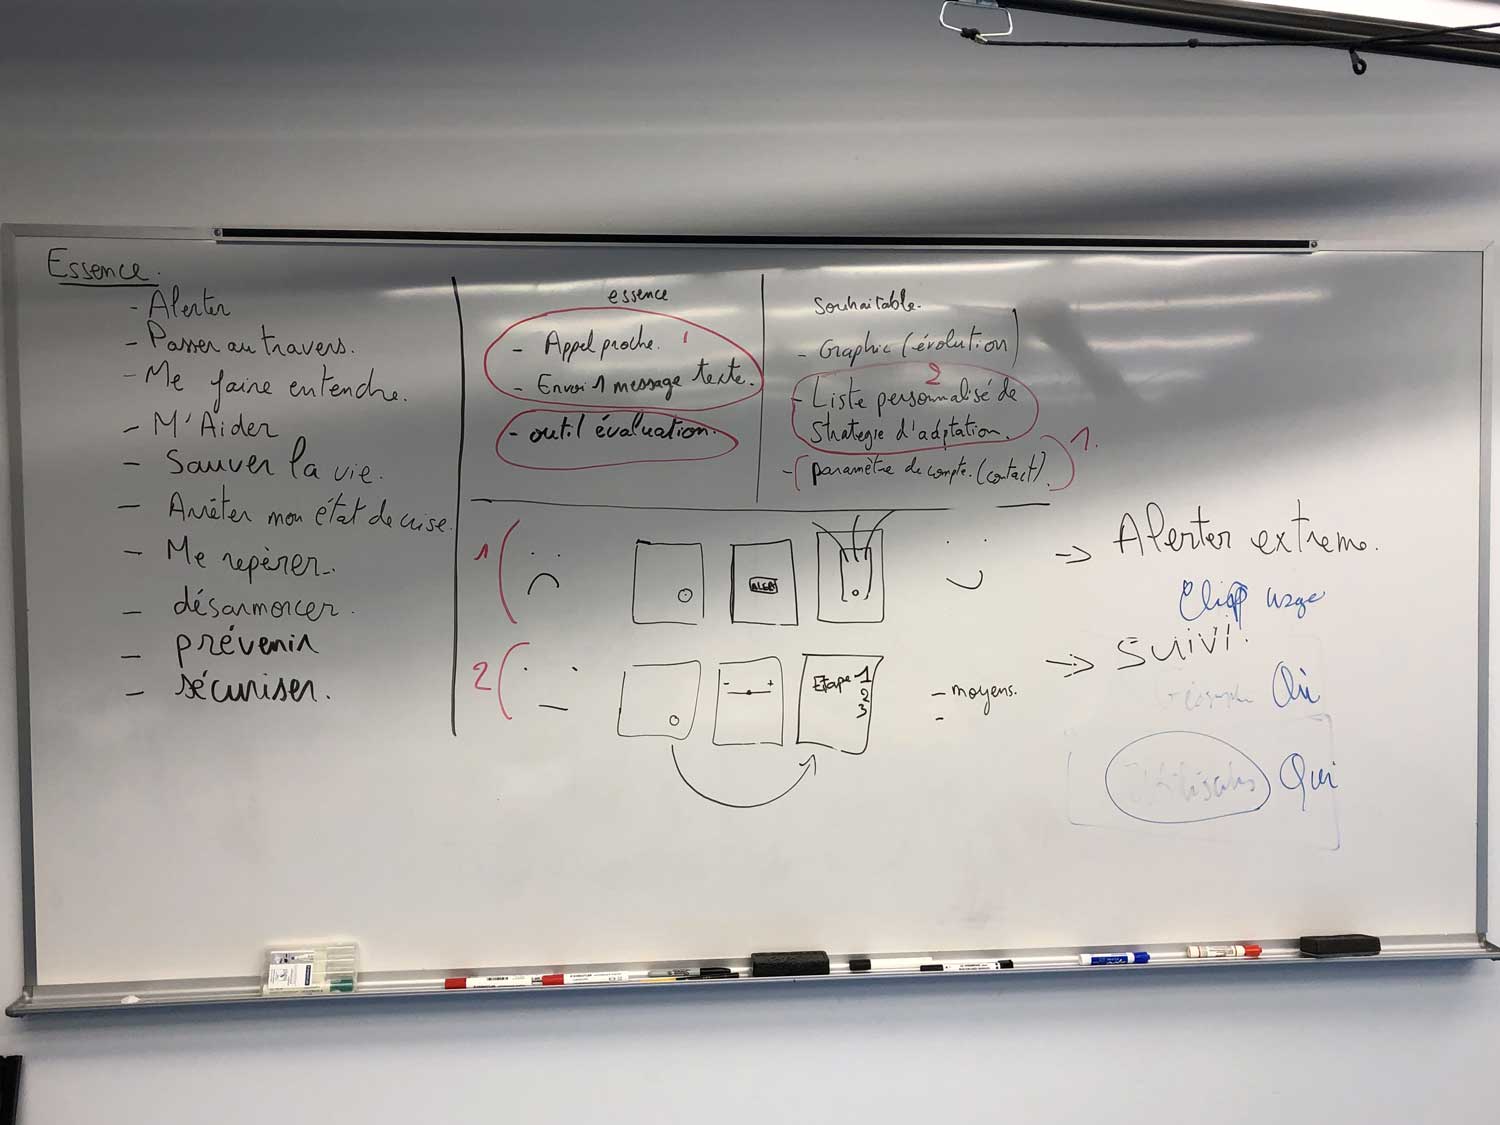 Essence.
- Alerter
- Passer au travers.
- Me faire entendre.
- M'Aider
- Sauver la vie.
- Arrêter mon état de crise.
- Me repérer.
- désarmorcer.
- prévenir
- sécuriser.
essence
- Appel proche. 1
- Envoi 1 message texte.
- outil évaluation.
Souhaitable.
- Graphic (évolution)
2
- Liste personnalisé de
Strategie d'adptation.
- (paramètre de compte. (contact). 1.
1
ALERT
→ Alerter extreme.
usage
2
- +
Etape 1
2
3
- moyens.
-
→ Suivi.
Où
Qui